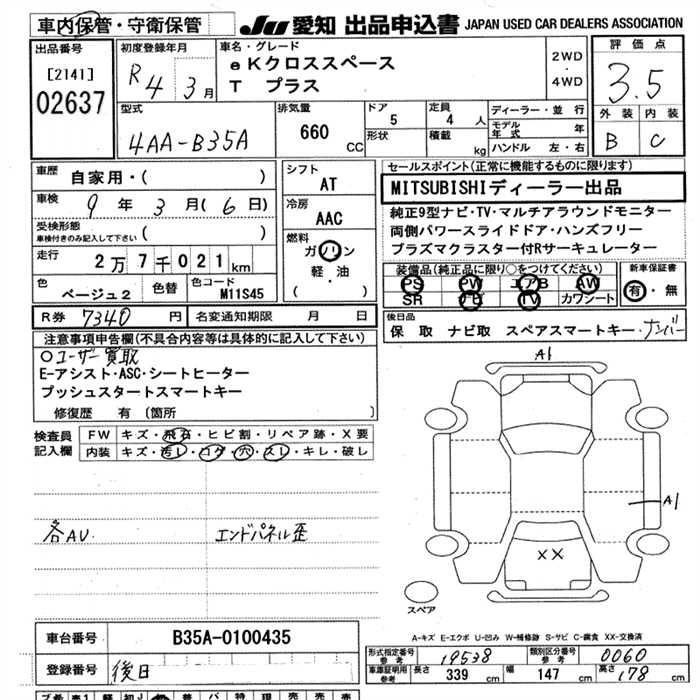 車内保管・守衛保管
JU 愛知 出品申込書 JAPAN USED CAR DEALERS ASSOCIATION
出品番号
[2141]
02637
初度登録年月
R4 3月
車名・グレード
eKクロススペース
T プラス
2WD
・
4WD
評価点
3.5
外装 内装
B C
型式
4AA-B35A
排気量
660
CC
ドア
5
形状
定員
4 人
積載
kg
ディーラー・並行
モデル年式 年
ハンドル 左・右
車歴
自家用・( )
車検
9年 3月(6日)
受検形態
車検付きのみ記入して下さい ( )
走行
2万7千021km
色
ベージュ2
色替
色コード
M11S45
シフト
AT
冷房
AAC
燃料
ガソリン
軽・油
( )
セールスポイント(正常に機能するものに限ります)
MITSUBISHIディーラー出品
純正9型ナビ・TV・マルチアラウンドモニター
両側パワースライドドア・ハンズフリー
プラズマクラスター付Rサーキュレーター
装備品(純正品に限り○をつけてください)
PS PW エアB AW
SR ナビ TV カワシート
新車保証書
有・無
R券 7340円
名変通知期限 月 日
後日品
保 取 ナビ取 スペアスマートキー・ナンバー
注意事項申告欄(不具合内容等は具体的に記入して下さい)
○ユーザー買取
E-アシスト・ASC・シートヒーター
プッシュスタートスマートキー
修復歴 有 (箇所 )
検査員記入欄
FW キズ・飛石・ヒビ割・リペア跡・X要
内装 キズ・汚レ・コゲ・穴・スレ・キレ・破レ
各AU エンドパネル歪
A1
A1
XX
スペア
A-キズ E-エクボ U-凹み W-補修跡 S-サビ C-腐食 XX-交換済
車台番号 B35A-0100435
登録番号 後日
形式指定番号参考 19538
類別区分番号参考 0060
車庫証明用参考 長さ 339 cm 幅 147 cm 高さ 178 cm